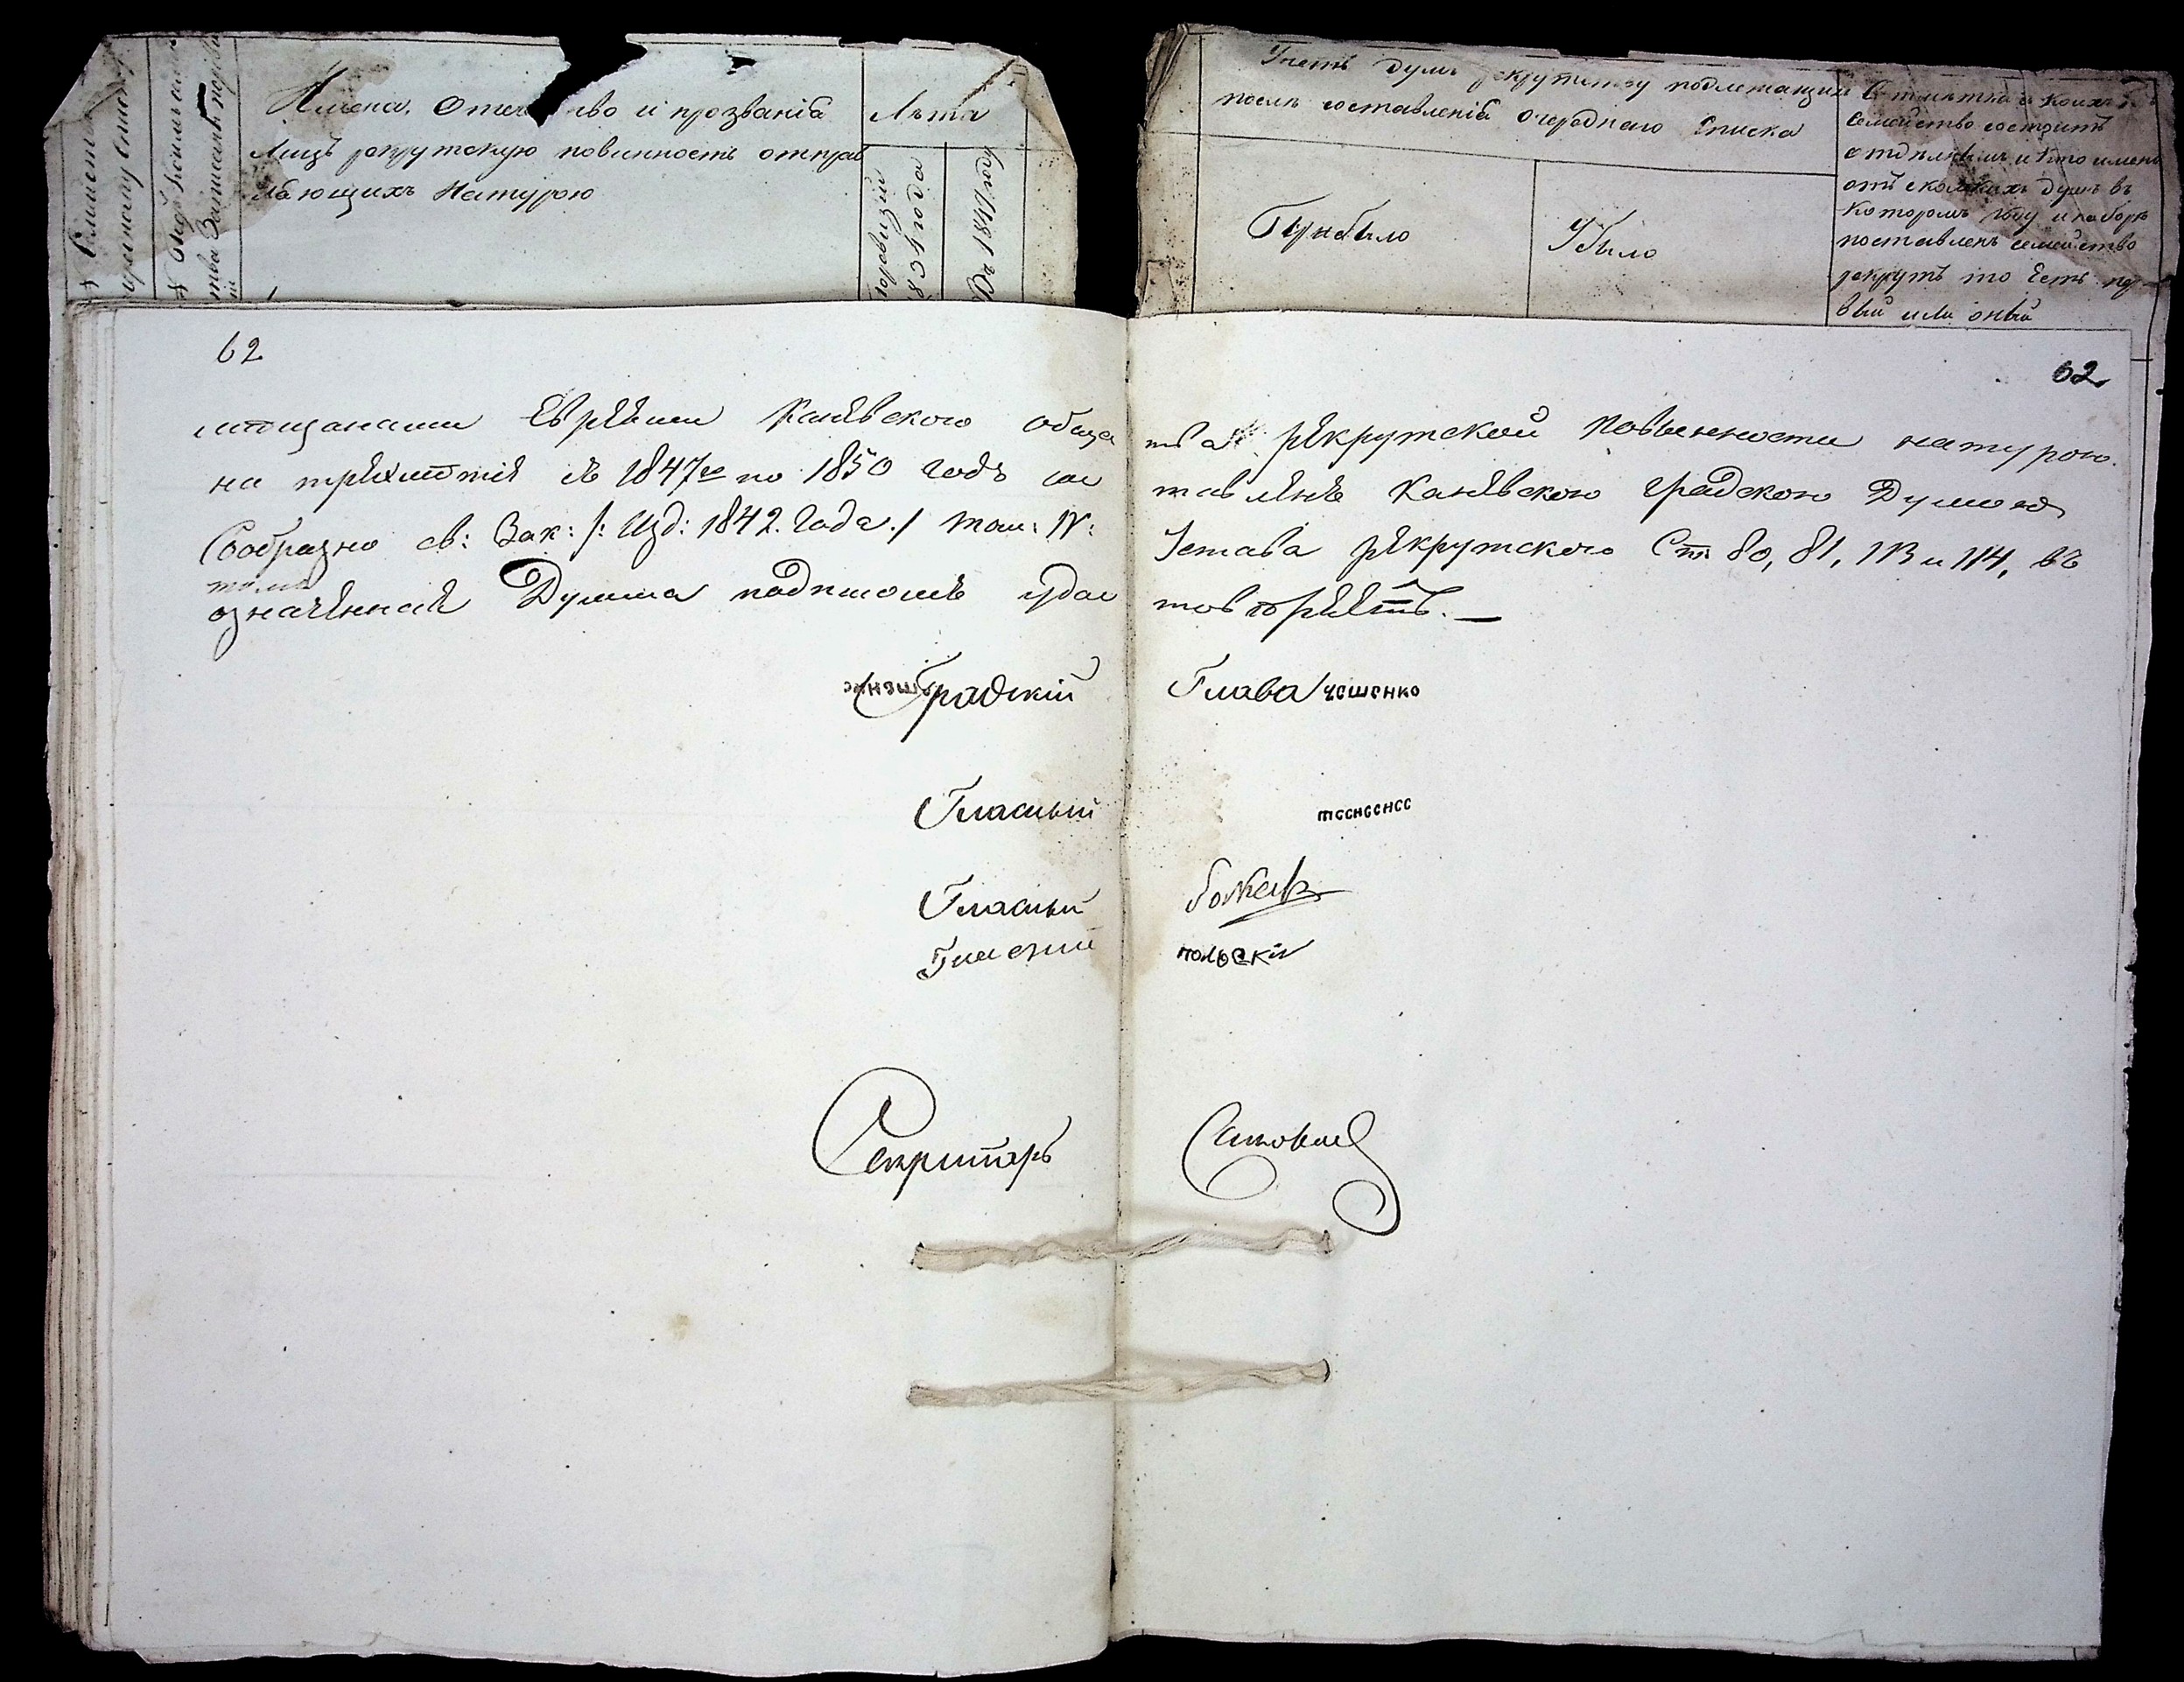 Имена, Отечество и прозваніа
Лицъ рекрутскую повинность отправ
ляющихъ Натурою
Лѣта
1834 года
Учетъ душъ рекрутству подлежащихъ
послѣ составленіа очереднаго Списка
Прибыло
Убыло
Отмѣтка о коихъ
Семейство состоитъ
отдѣльнымъ и кто имен
отъ сколькихъ душъ въ
Которомъ году и наборѣ
поставленъ семейство
рекрутъ то Есть пер
вый или оный
62
62
мѣщанами Евреями Каневского общества рекрутской повинности натурою
на трехлѣтіе съ 1847го по 1850 годъ составленъ Каневскою Градскою Думою
Сообразно св: Зак: /: Изд: 1842. Года :/ Том: IV: Устава рекрутского Ст: 80, 81, 113 и 114, въ
томъ
означенная Думма подписомъ удостовѣряетъ.
Градскій Глава чешенко
Гласный
Гласный
Гласный польскій
Секритарь